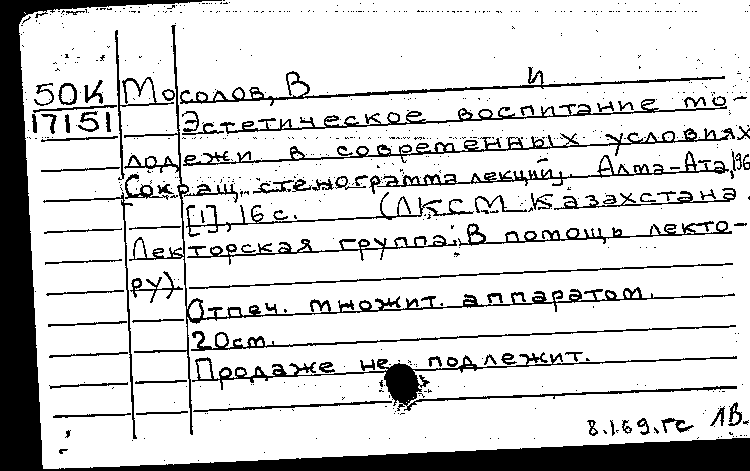 50К Мосолов, В И
17151 Эстетическое воспитание мо-
лодежи в современных условиях
Сокращ. стенограмма лекций. Алма-Ата, 196
[1], 16 с. (ЛКСМ Казахстана.
Лекторская группа; В помощь лекто-
ру).
Отпеч. множит. аппаратом.
20 ст.
Продаже не подлежит.
8.1.69.гс ЛВ.